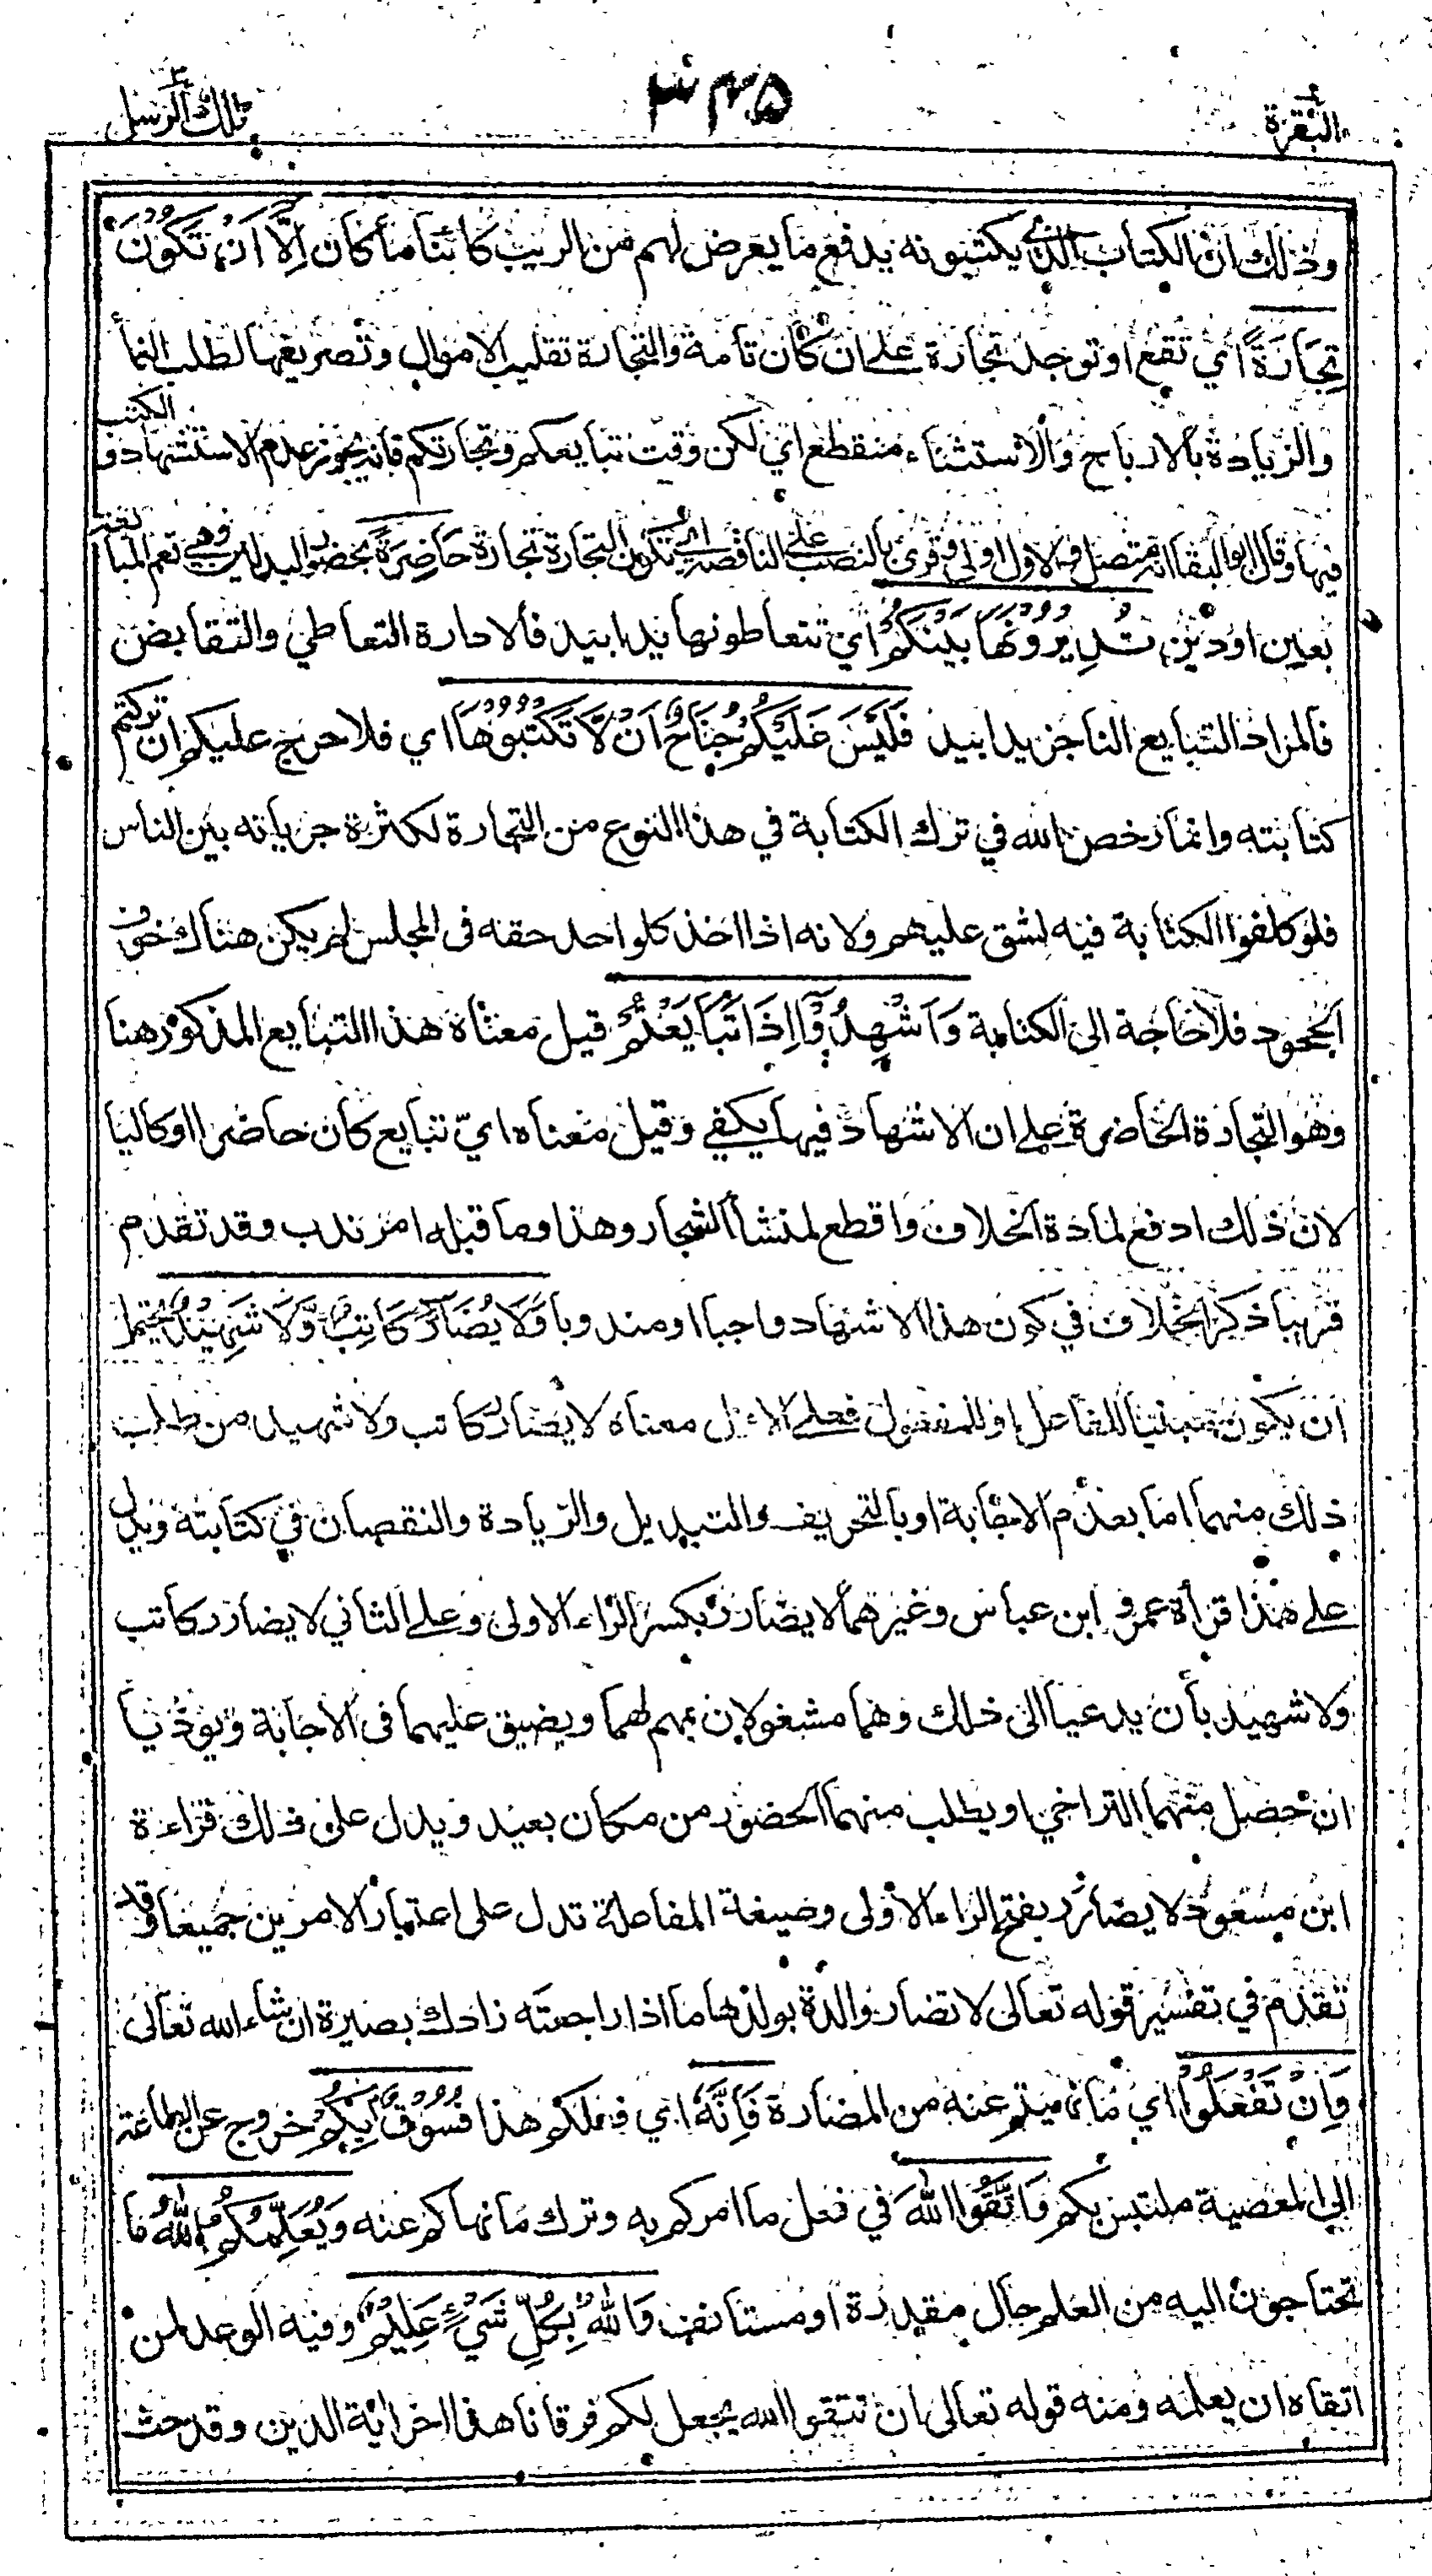 البقرة
٣٤٥
تلك الرسل
وذلك ان الكتاب الذي يكتبونه يدفع ما يعرض لهم من الريب كائنا ما كان اِلَّا اَنْ تَكُوْنَ
تِجَارَةً اي تقع او توجد تجارة على ان كان تامة والتجارة تقليب الاموال وتصريفها لطلب النما
والزيادة بالارباح والاستثناء منقطع اي لكن وقت تبايعكم وتجارتكم فانه يجوز عدم الاستشهاد و الكتب
فيها وقال ابو البقا انه متصل والاول اولى وقرئ بالنصب على الناقصة اي تكون التجارة تجارة حَاضِرَةً بحضور البدلين وهي تعم المبا يعة
بعين او دين تُدِيْرُوْنَهَا بَيْنَكُمْ اي تتعاطونها يدا بيد فالادارة التعاطي والتقابض
فالمراد التبايع الناجز يدا بيد فَلَيْسَ عَلَيْكُمْ جُنَاحٌ اَنْ لَّا تَكْتُبُوْهَا اي فلا حرج عليكم ان تركتم
كتابته وانما رخص الله في ترك الكتابة في هذا النوع من التجارة لكثرة جريانه بين الناس
فلو كلفوا الكتابة فيه لشق عليهم ولانه اذا اخذ كل واحد حقه في المجلس لم يكن هناك خوف
الجحود فلا حاجة الى الكتابة وَاَشْهِدُوْٓا اِذَا تَبَايَعْتُمْ قيل معناه هذا التبايع المذكور هنا
وهو التجارة الحاضرة على ان الاشهاد فيها يكفي وقيل معناه اي تبايع كان حاضرا او كاليا
لان ذلك ادفع لمادة الخلاف واقطع لمنشأ الشجار وهذا وما قبله امر ندب وقد تقدم
قريبا ذكر الخلاف في كون هذا الاشهاد واجبا او مندوبا وَلَا يُضَآرَّ كَاتِبٌ وَّلَا شَهِيْدٌ يحتمل
ان يكون مبنيا للفاعل او للمفعول فعلى الاول معناه لا يضارر كاتب ولا شهيد من طلب
ذلك منهما اما بعدم الاجابة او بالتحريف والتبديل والزيادة والنقصان في كتابته ويدل
على هذا قرأة عمر و ابن عباس وغيرهما لا يضارر بكسر الراء الاولى وعلى الثاني لا يضارر كاتب
ولا شهيد بأن يدعيا الى ذلك وهما مشغولان بمهم لهما ويضيق عليهما في الاجابة ويوذيا
ان حصل منهما التراخي او يطلب منهما الحضور من مكان بعيد ويدل على ذلك قراءة
ابن مسعود لا يضارر بفتح الراء الاولى وصيغة المفاعلة تدل على اعتبار الامرين جميعا وقد
تقدم في تفسير قوله تعالى لا تضار والدة بولدها ما اذا راجعته زادك بصيرة ان شاء الله تعالى
وَاِنْ تَفْعَلُوْا اي ما نهيتم عنه من المضارة فَاِنَّهٗ اي فعلكم هذا فُسُوْقٌۢ بِكُمْ خروج عن الطاعة
الى المعصية ملتبس بكم وَاتَّقُوا اللهَ في فعل ما امركم به وترك ما نهاكم عنه وَيُعَلِّمُكُمُ اللهُ ما
تحتاجون اليه من العلم حال مقدرة او مستانف وَاللهُ بِكُلِّ شَيْءٍ عَلِيْمٌ وفيه الوعد لمن
اتقاه ان يعلمه ومنه قوله تعالى ان تتقوا الله يجعل لكم فرقانا هذا اخر اية الدين وقد حث